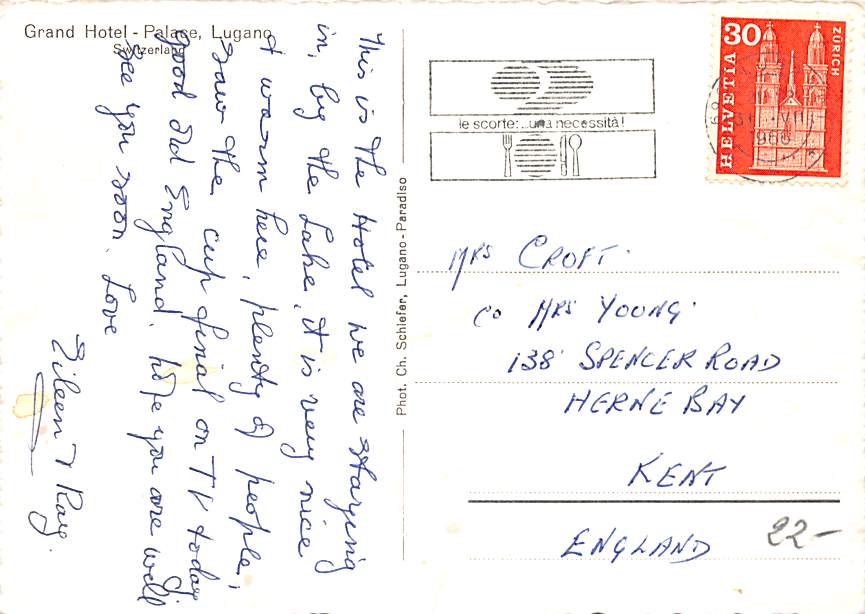 Grand Hotel - Palace, Lugano
Switzerland
This is the Hotel we are staying
in, by the Lake, it is very nice
& warm here, plenty of people,
saw the cup final on TV today
good old England, hope you are well
see you soon. Love
Eileen & Ray.
Phot. Ch. Schiefer, Lugano-Paradiso
le scorte:...una necessità!
30
HELVETIA
ZÜRICH
VII
1966
MRS CROFT.
c/o MRS YOUNG.
138 SPENCER ROAD
HERNE BAY
KENT
ENGLAND
22-